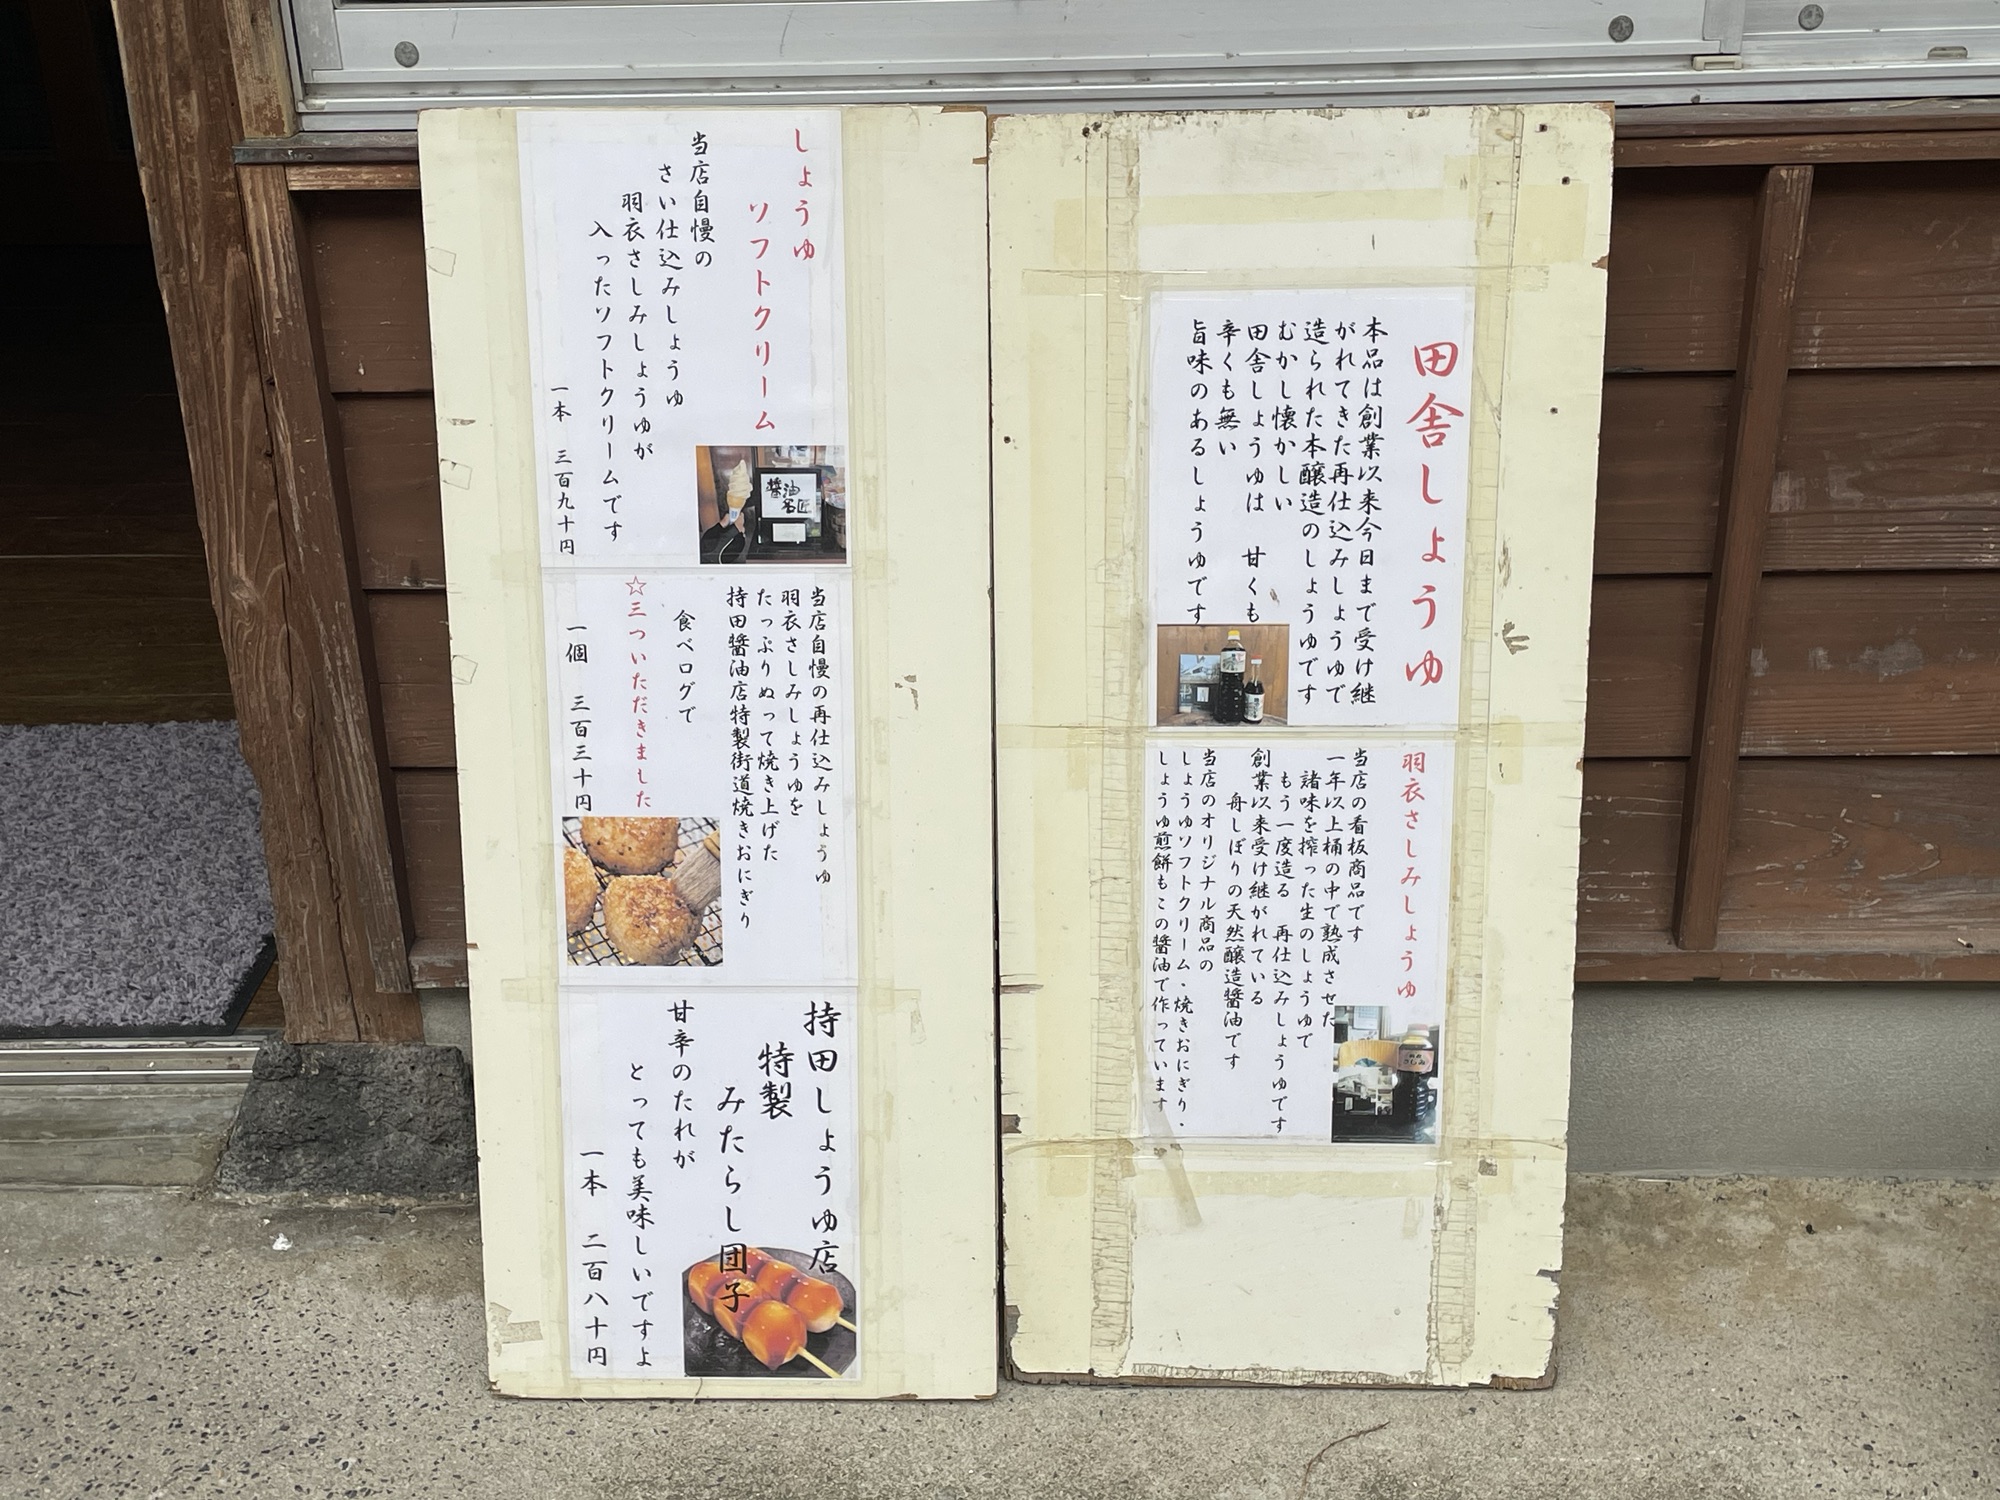 田舎しょうゆ
本品は創業以来今日まで受け継
がれてきた再仕込みしょうゆで
造られた本醸造のしょうゆです
むかし懐かしい
田舎しょうゆは　甘くも
辛くも無い
旨味のあるしょうゆです
羽衣さしみしょうゆ
当店の看板商品です
一年以上桶の中で熟成させた
諸味を搾った生のしょうゆで
もう一度造る　再仕込みしょうゆです
創業以来受け継がれている
舟しぼりの天然醸造醤油です
当店のオリジナル商品の
しょうゆソフトクリーム・焼きおにぎり・
しょうゆ煎餅もこの醤油で作っています
しょうゆ
ソフトクリーム
当店自慢の
さい仕込みしょうゆ
羽衣さしみしょうゆが
入ったソフトクリームです
一本　三百九十円
醤油
名匠
当店自慢の再仕込みしょうゆ
羽衣さしみしょうゆを
たっぷりぬって焼き上げた
持田醤油店特製街道焼きおにぎり
食べログで
☆三ついただきました
一個　三百三十円
持田しょうゆ店
特製
みたらし団子
甘辛のたれが
とっても美味しいですよ
一本　二百八十円